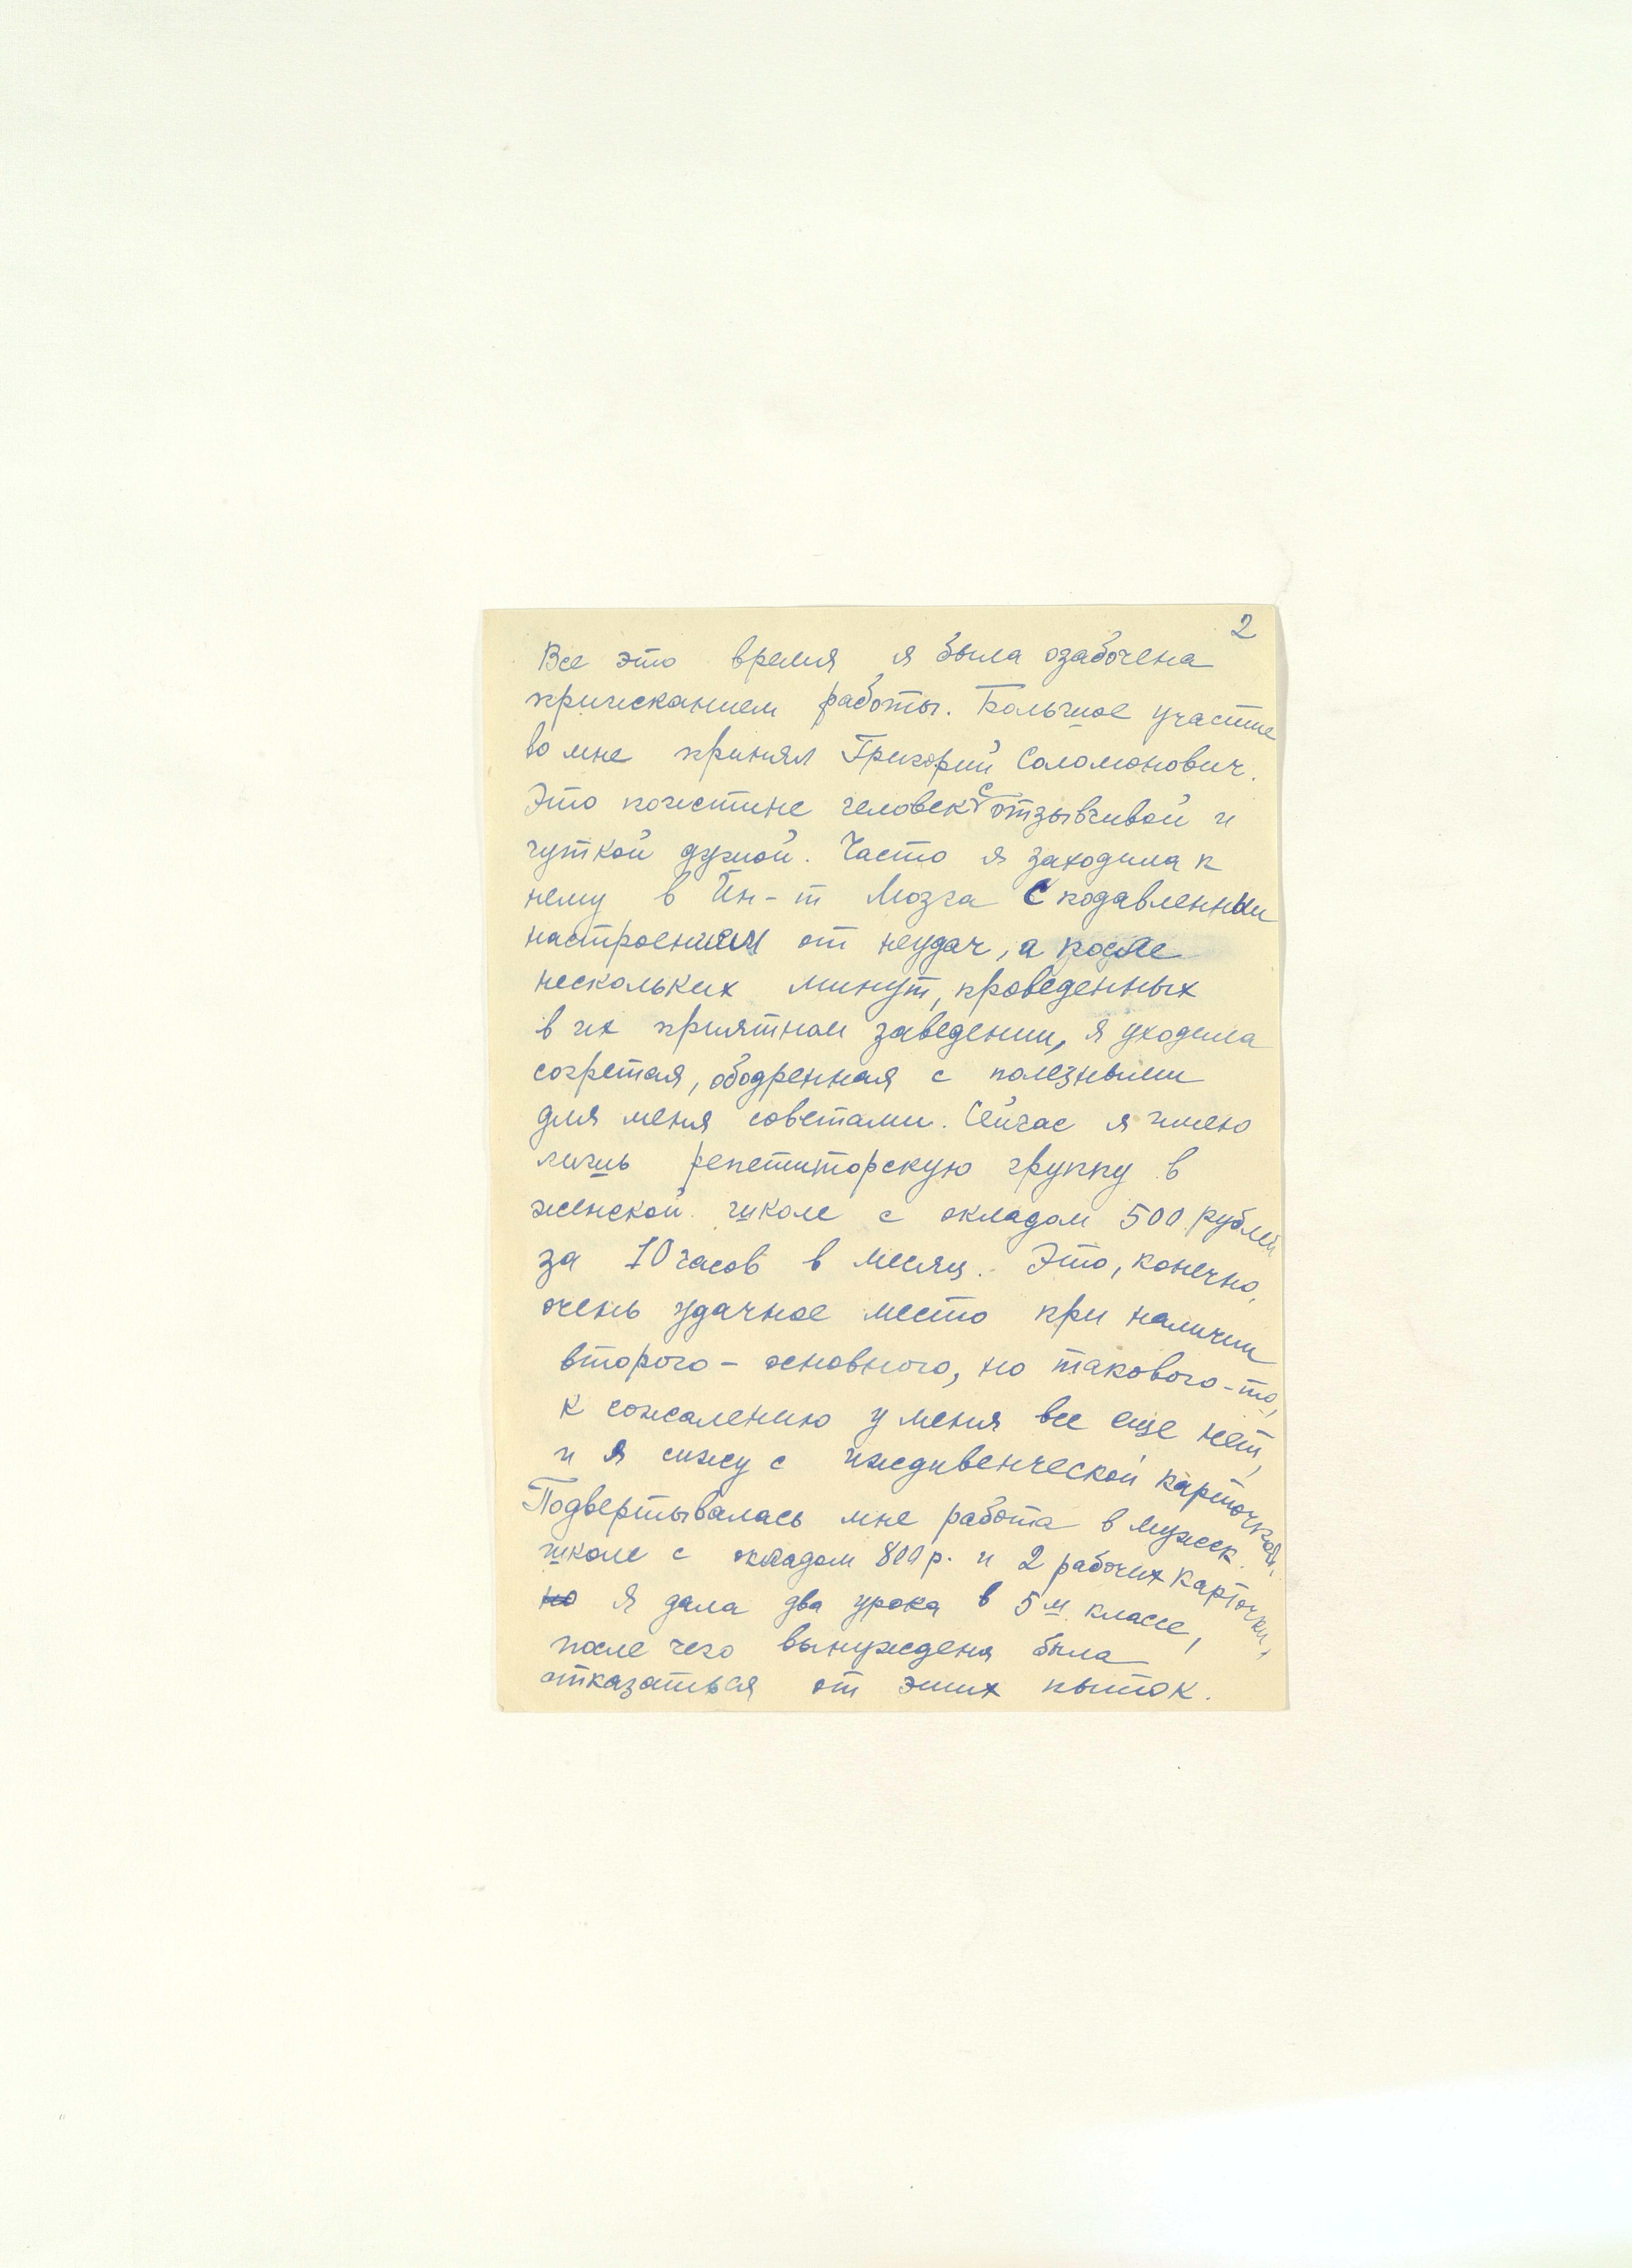 2
Все это время я была озабочена
приисканием работы. Большое участие
во мне принял Григорий Соломонович.
Это поистине человек с отзывчивой и
чуткой душой. Часто я заходила к
нему в Ин-т Мозга с подавленным
настроением от неудач, а после
нескольких минут, проведенных
в их приятном заведении, я уходила
согретая, ободренная с полезными
для меня советами. Сейчас я имею
лишь репетиторскую группу в
женской школе с окладом 500 рублей
за 10 часов в месяц. Это, конечно,
очень удачное место при наличии
второго - основного, но такового-то,
к сожалению у меня все еще нет,
и я сижу с иждивенческой карточкой.
Подвертывалась мне работа в мужск.
школе с окладом 800 р. и 2 рабочих карточки,
но я дала два урока в 5м классе,
после чего вынуждена была
отказаться от этих пыток.